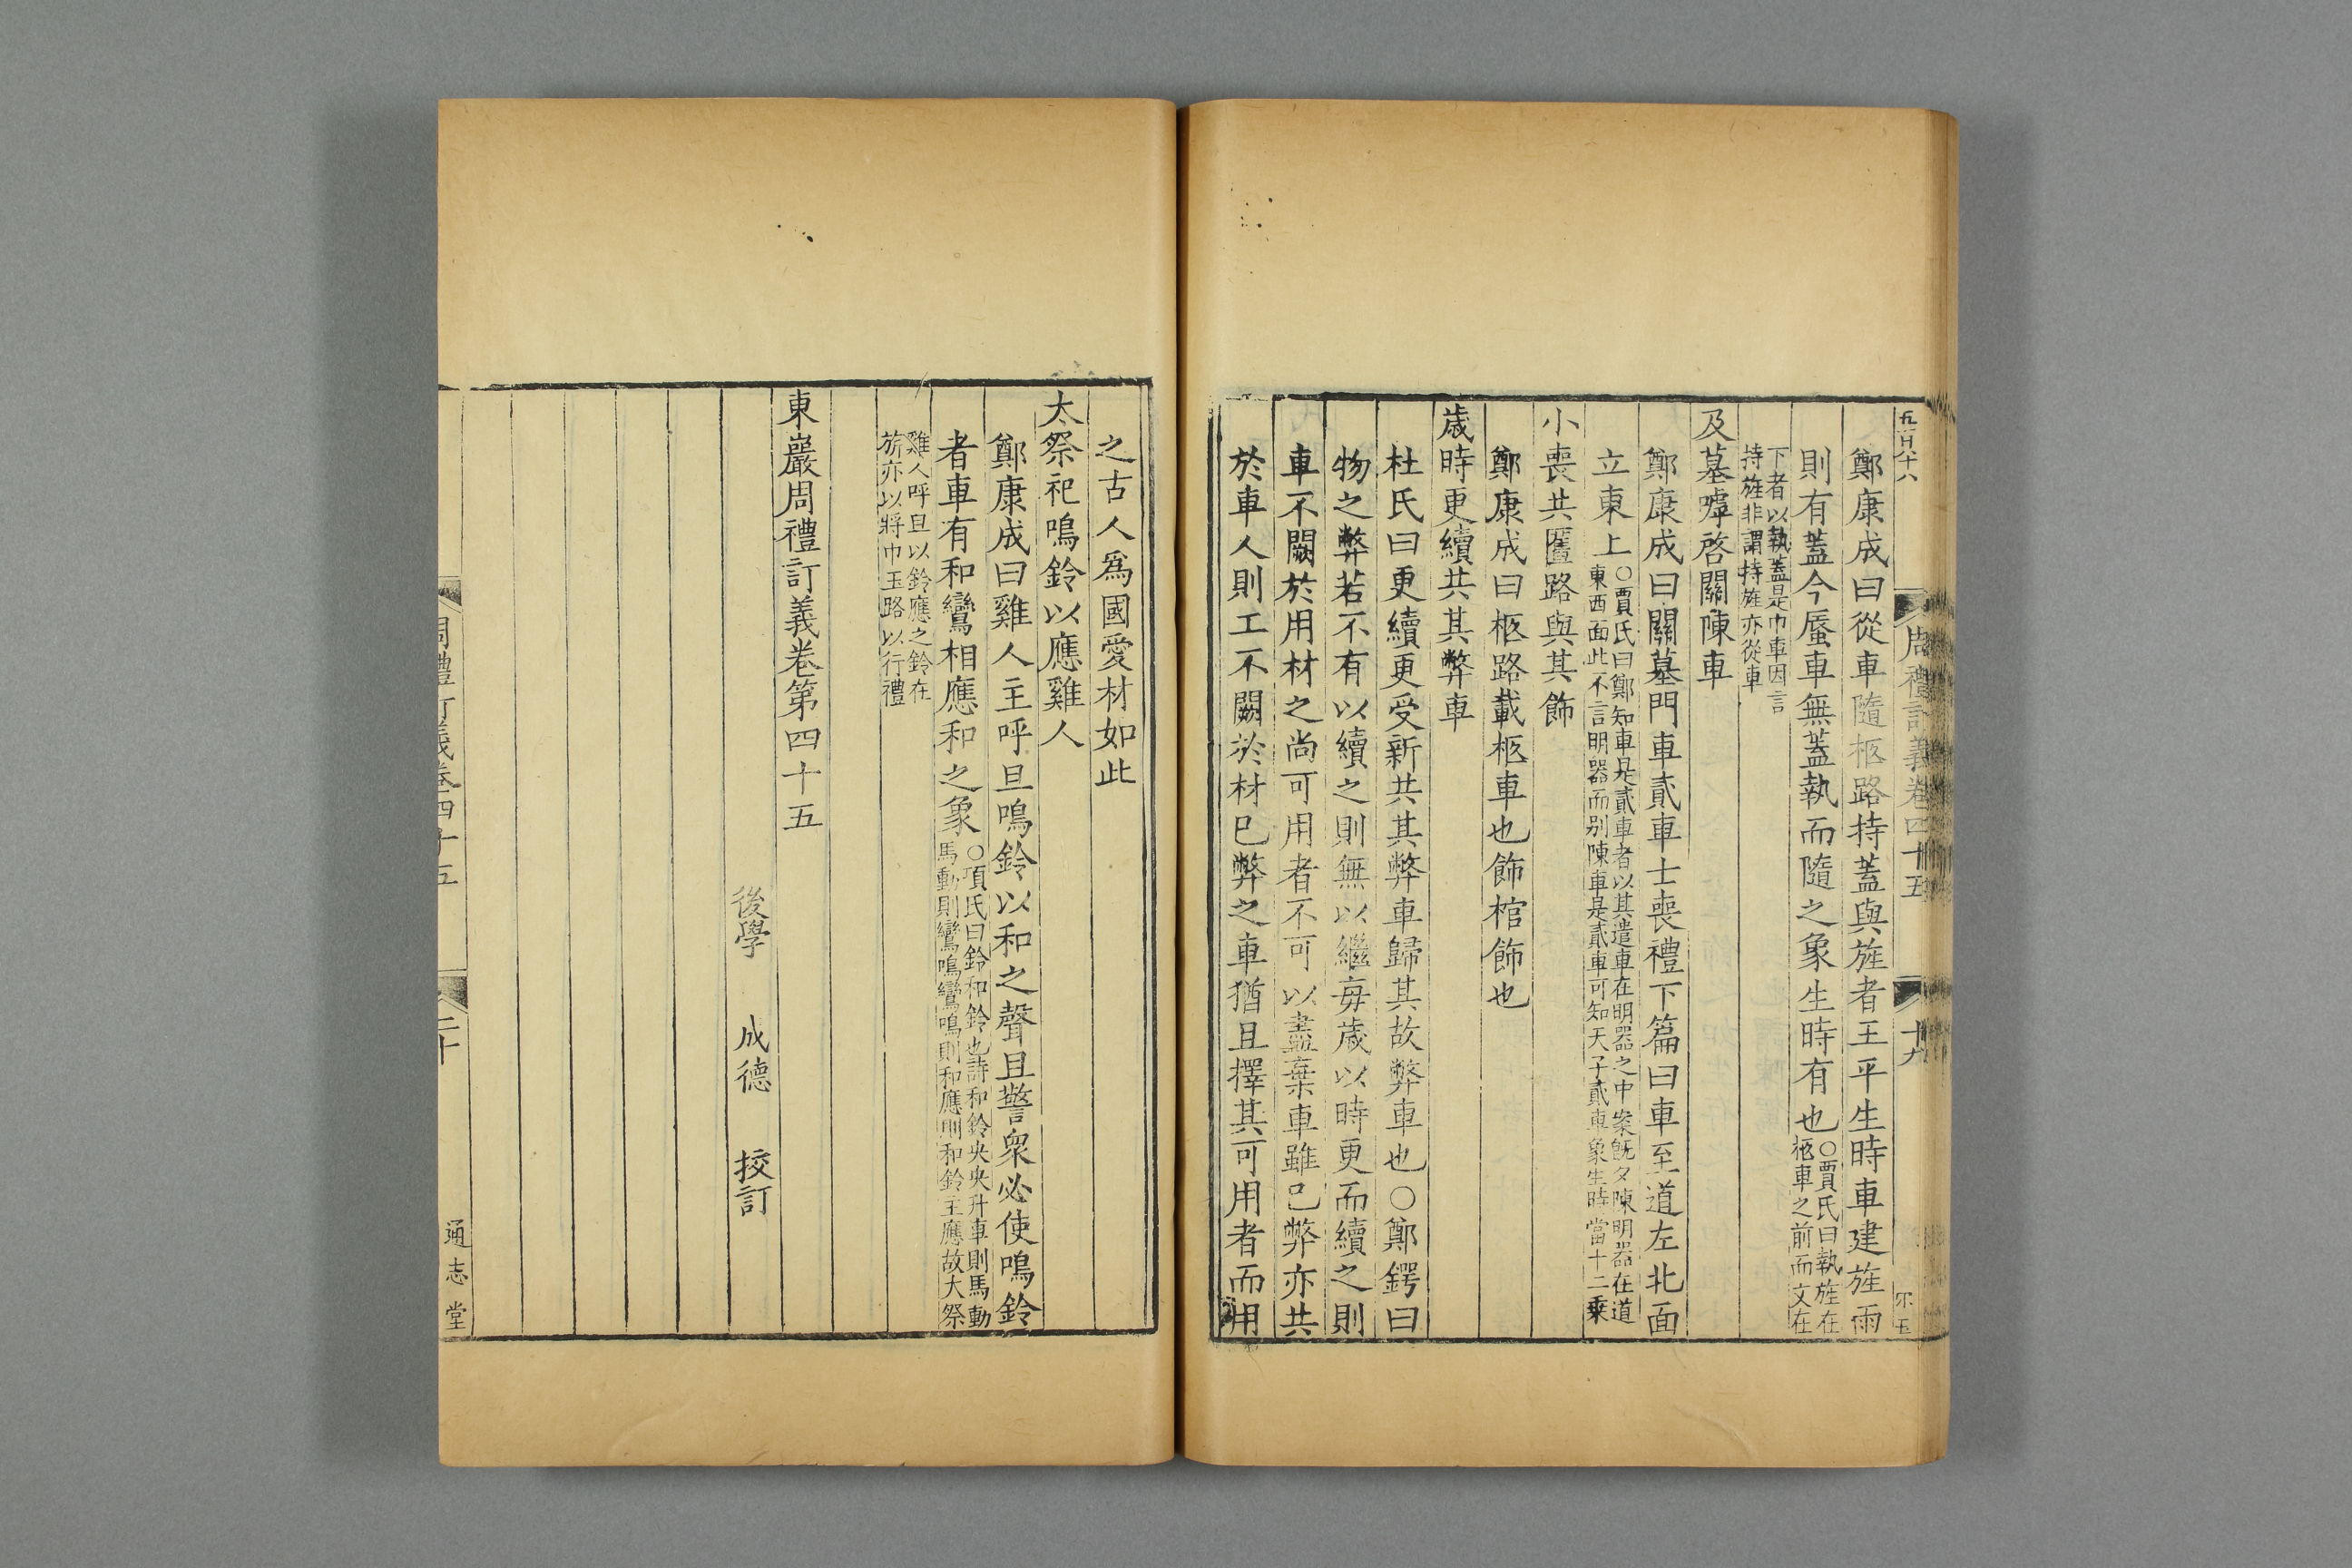 五百八十八
周禮訂義卷四十五
十九
鄭康成曰從車隨柩路持蓋與旌者王平生時車建旌雨
則有蓋今蜃車無蓋執而隨之象生時有也○賈氏曰執旌在
柩車之前而文在
下者以執蓋是巾車因言
持旌非謂持旌亦從車
及墓嘑啓關陳車
鄭康成曰關墓門車貳車士喪禮下篇曰車至道左北面
立東上○賈氏曰鄭知車是貳車者以其遣車在明器之中案旣夕陳明器在道
東西面此不言明器而别陳車是貳車可知天子貳車象生時當十二乘
小喪共匶路與其飾
鄭康成曰柩路載柩車也飾棺飾也
歲時更續共其弊車
杜氏曰更續更受新共其弊車歸其故弊車也○鄭鍔曰
物之弊若不有以續之則無以繼毎歲以時更而續之則
車不闕於用材之尚可用者不可以盡棄車雖已弊亦共
於車人則工不闕於材已弊之車猶且擇其可用者而用
之古人爲國愛材如此
大祭祀鳴鈴以應雞人
鄭康成曰雞人主呼旦鳴鈴以和之聲且警衆必使鳴鈴
者車有和鸞相應和之象○項氏曰鈴和鈴也詩和鈴央央升車則馬動
馬動則鸞鳴鸞鳴則和應則和鈴主應故大祭
雞人呼旦以鈴應之鈴在
旂亦以將巾玉路以行禮
東巖周禮訂義卷第四十五
後學 成德 挍訂
周禮訂義卷四十五
二十
通志堂